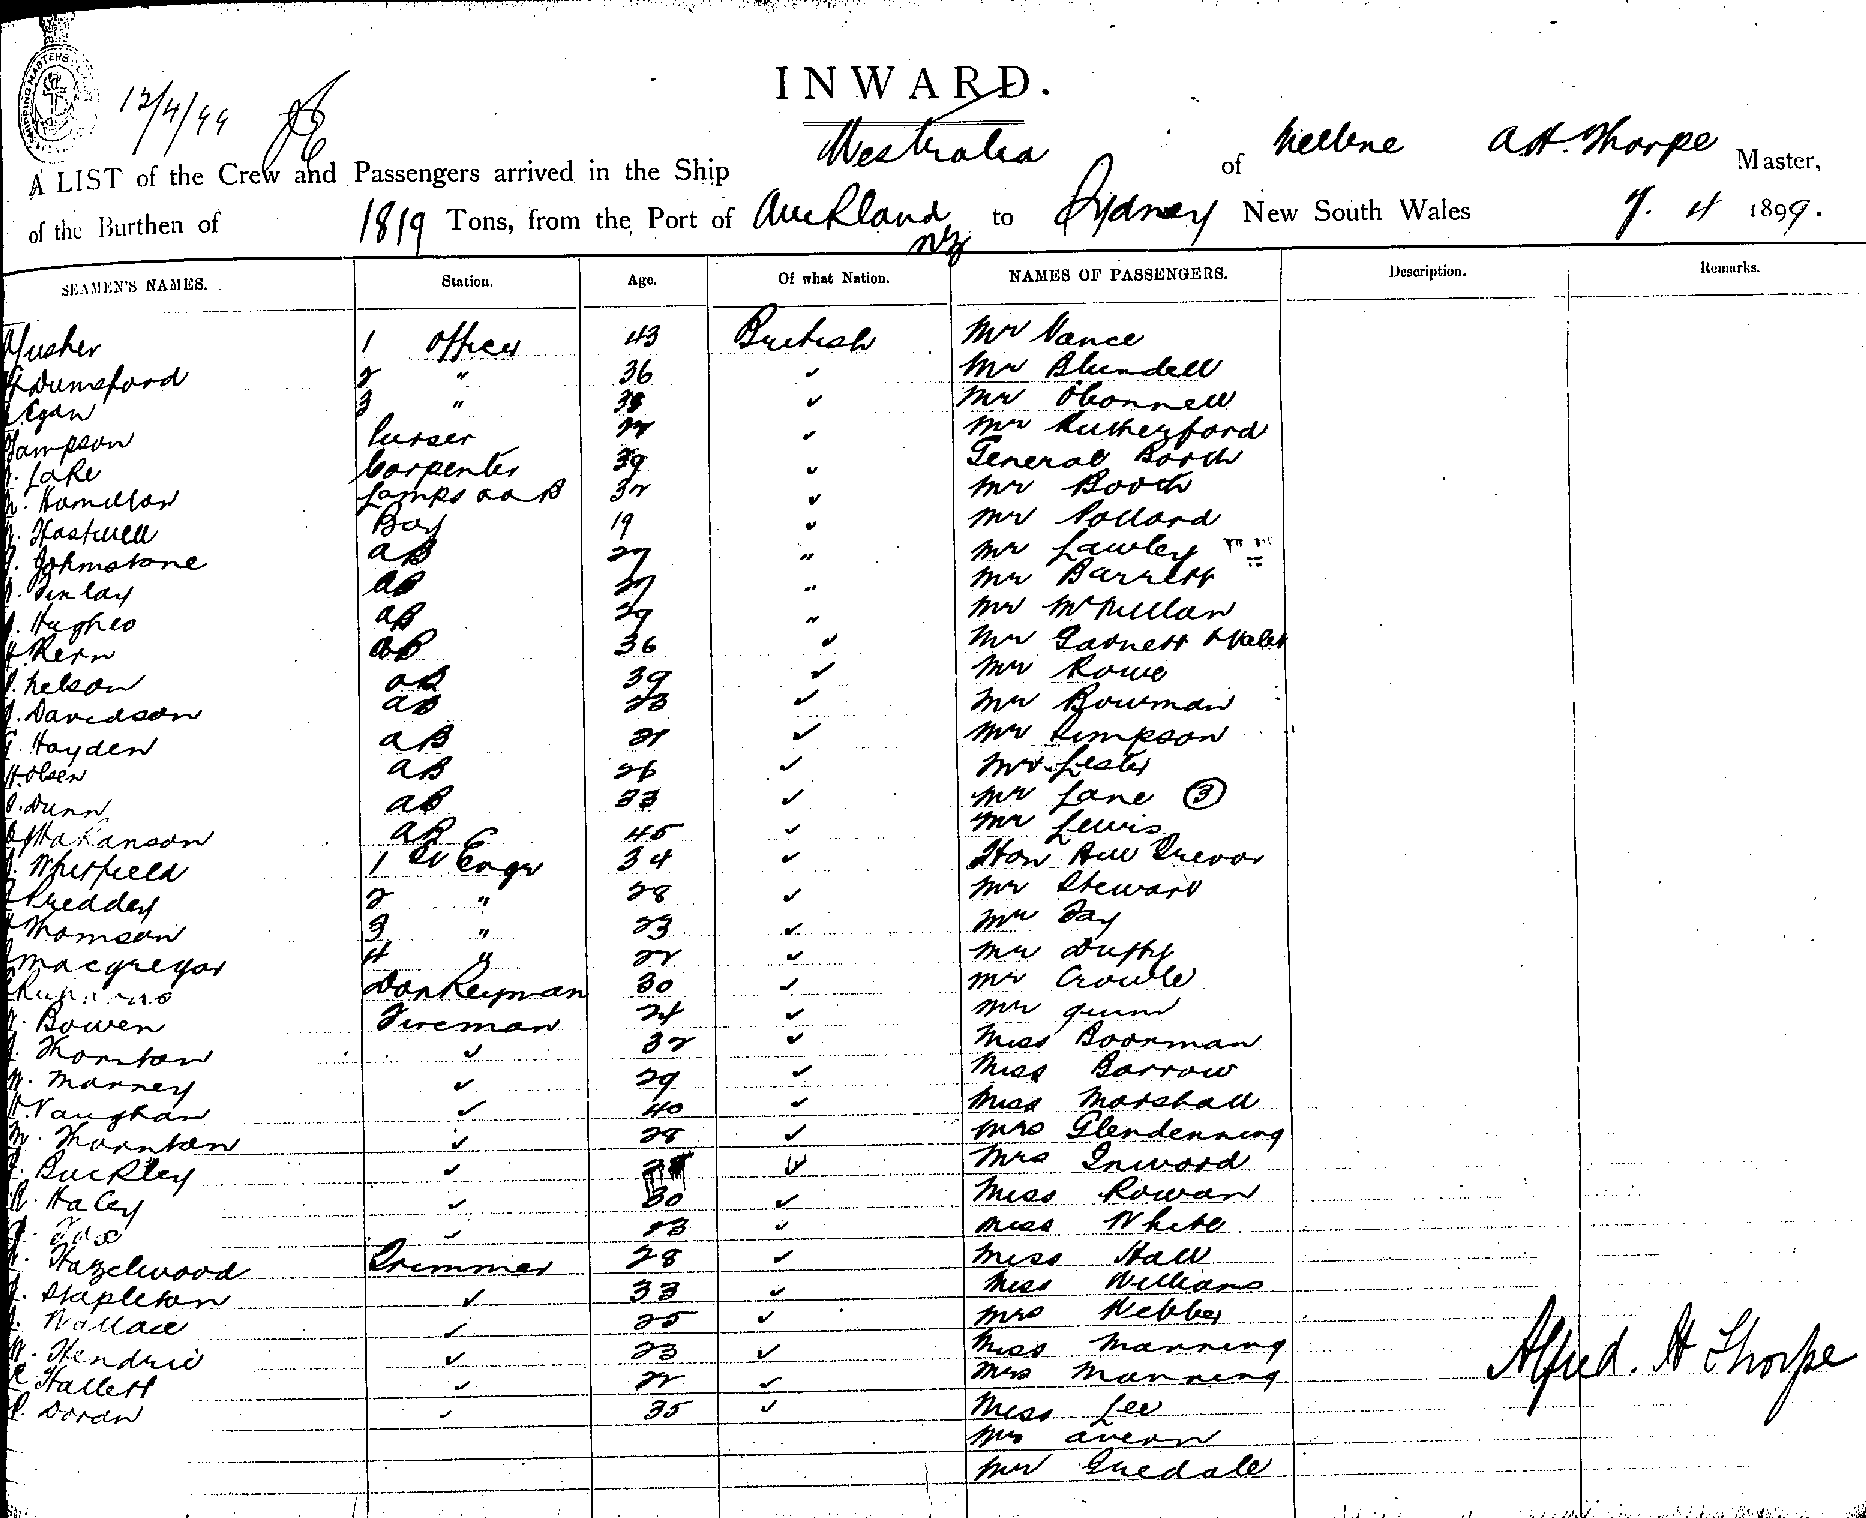 INWARD.
12/4/99
A LIST of the Crew and Passengers arrived in the Ship Westralia of Melbne A H. Thorpe Master,
of the Burthen of 1819 Tons, from the Port of Auckland NZ to Sydney New South Wales 7. 4 1899.
SEAMEN'S NAMES. Station. Age. Of what Nation. NAMES OF PASSENGERS. Description. Remarks.
Lusher 1 Officer 43 British Mr Vance
Dunsford 2 " 36 ✓ Mr Blundell
Egan 3 " ✓ Mr O'Connell
Sampson Purser 22 ✓ Mr Rutherford
Lake Carpenter 39 ✓ General Booth
Hamilton Lamps & AB 32 ✓ Mr Booth
Hastwell Boy 19 ✓ Mr Pollard
Johnstone AB 27 " Mr Lawley
Finlay AB 27 " Mr Barrett
Hughes AB 29 " Mr McMillan
Kern AB 36 ✓ Mr Garnett & Valet
Nelson AB 39 ✓ Mr Rowe
Davidson AB 23 ✓ Mr Bowman
Hayden AB 21 ✓ Mr Simpson
H Olsen AB 26 ✓ Mr Lester
Dunn AB 33 ✓ Mr Lane (3)
Hakanson AB 45 ✓ Mr Lewis
Whitfield 1 Engr 34 ✓ Hon Hill Trevor
Preddey 2 " 28 ✓ Mr Steward
Thomson 3 " 23 ✓ Mr Fay
Macgregor 4 " 22 ✓ Mr Duffy
Donkeyman 30 ✓ Mr Crowle
Bowen Fireman 24 ✓ Mr Quinn
Thornton ✓ 32 ✓ Miss Boorman
Manney ✓ 29 ✓ Miss Barrow
Vaughan ✓ 40 ✓ Miss Marshall
M. Thornton ✓ 28 ✓ Mrs Glendenning
Buckley ✓ ✓ Mrs Inwood
Haley ✓ 30 ✓ Miss Rowan
Fox ✓ 23 ✓ Miss White
Hazelwood Trimmer 28 ✓ Miss Hall
Stapleton ✓ 33 ✓ Miss Williams
Wallace ✓ 25 ✓ Mrs Webber
Hendrie ✓ 23 ✓ Miss Manning
Hallett ✓ 22 ✓ Mrs Manning
Doran ✓ 35 ✓ Miss Lee
Mrs Avern
Mr Guedalla
Alfred. H Thorpe